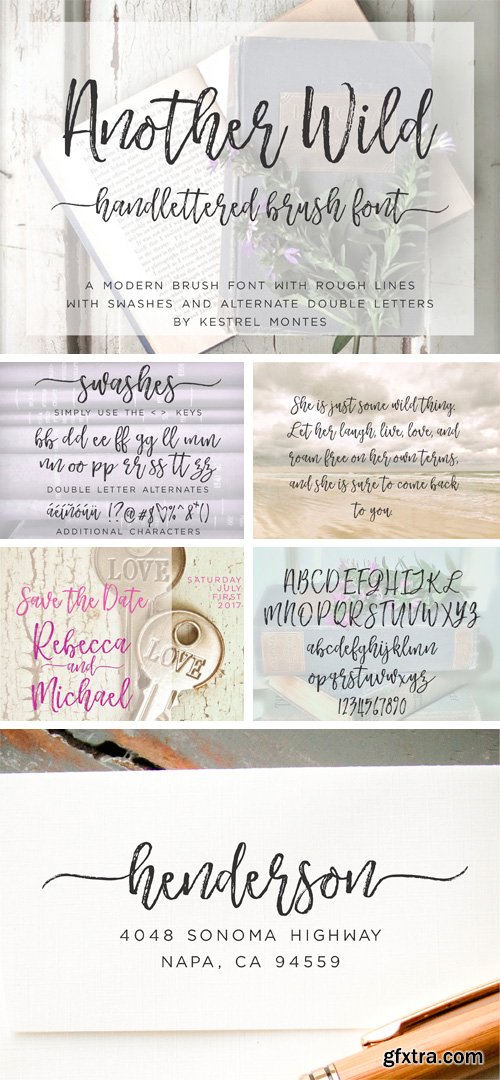 Another Wild
handlettered brush font
A MODERN BRUSH FONT WITH ROUGH LINES
WITH SWASHES AND ALTERNATE DOUBLE LETTERS
BY KESTREL MONTES
swashes
SIMPLY USE THE < > KEYS
bb dd ee ff gg ll mm
nn oo pp rr ss tt zz
DOUBLE LETTER ALTERNATES
áéíñóúü !?@#$%^&*()
ADDITIONAL CHARACTERS
She is just some wild thing.
Let her laugh, live, love, and
roam free on her own terms,
and she is sure to come back
to you.
LOVE
LOVE
Save the Date
SATURDAY
JULY
FIRST
2017
Rebecca
and
Michael
ABCDEFGHIJKL
MNOPQRSTUVWXYZ
abcdefghijklmn
opqrstuvwxyz
1234567890
henderson
4048 SONOMA HIGHWAY
NAPA, CA 94559
gfxtra.com